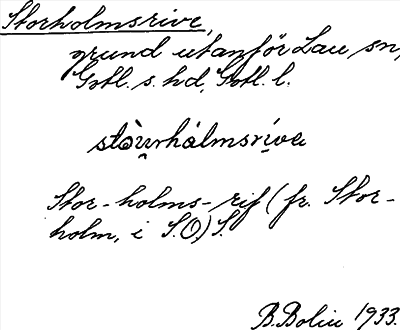 Storholmsrive,
grund utanför Lau sn,
Gotl. s. hd, Gotl. l.
stòu̯rhàlmsrívɐ
Stor-holms-rif (fr. Stor-
holm, i S.O) S.
B. Bolin 1933.